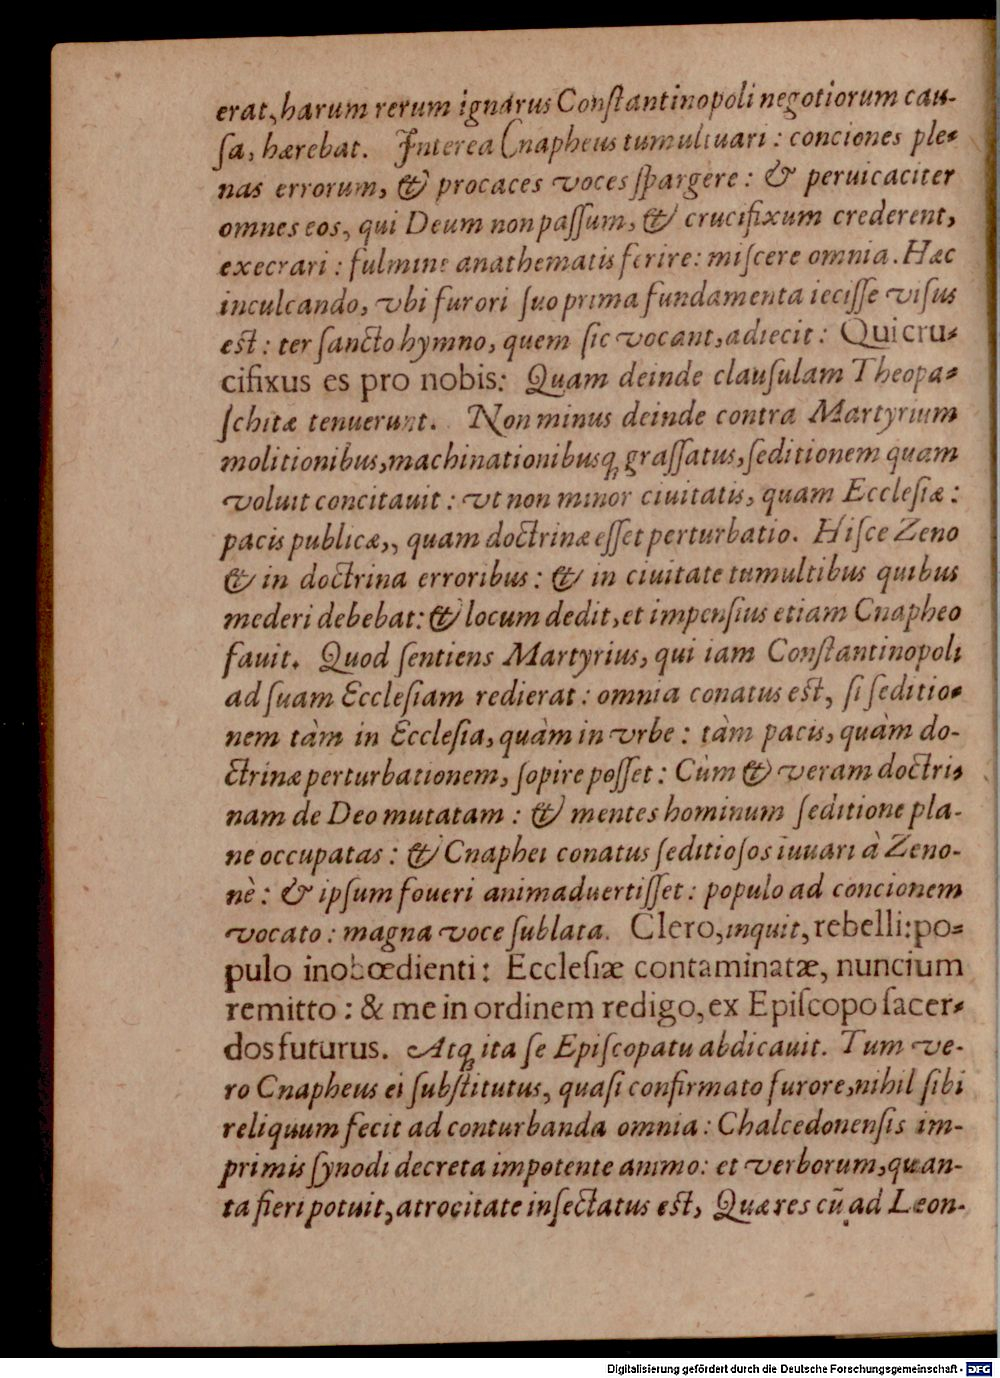 erat, harum rerum ignarus Conſtantinopoli negotiorum cau-
ſa, hærebat. Interea Cnapheus tumultuari: conciones ple-
nas errorum, & procaces voces ſpargere: & peruicaciter
omnes eos, qui Deum non paſſum, & crucifixum crederent,
execrari: fulmine anathematis ferire: miſcere omnia. Hæc
inculcando, vbi furori ſuo prima fundamenta ieciſſe viſus
eſt: ter ſancto hymno, quem ſic vocant, adiecit: Qui cru-
cifixus es pro nobis: Quam deinde clauſulam Theopa-
ſchitæ tenuerunt. Non minus deinde contra Martyrium
molitionibus, machinationibusq́ graſſatus, ſeditionem quam
voluit concitauit: vt non minor ciuitatis, quam Eccleſiæ:
pacis publicæ,, quam doctrinæ eſſet perturbatio. Hiſce Zeno
& in doctrina erroribus: & in ciuitate tumultibus quibus
mederi debebat: & locum dedit, et impenſius etiam Cnapheo
fauit. Quod ſentiens Martyrius, qui iam Conſtantinopoli
ad ſuam Eccleſiam redierat: omnia conatus eſt, ſi ſeditio-
nem tàm in Eccleſia, quàm in vrbe: tàm pacis, quàm do-
ctrinæ perturbationem, ſopire poſſet: Cùm & veram doctri-
nam de Deo mutatam: & mentes hominum ſeditione pla-
ne occupatas: & Cnaphei conatus ſeditioſos iuuari à Zeno-
nè: & ipſum foueri animaduertiſſet: populo ad concionem
vocato: magna voce ſublata. Clero, inquit, rebelli: po-
pulo inobœdienti: Eccleſiæ contaminatæ, nuncium
remitto: & me in ordinem redigo, ex Epiſcopo ſacer-
dos futurus. Atq́ ita ſe Epiſcopatu abdicauit. Tum ve-
ro Cnapheus ei ſubſtitutus, quaſi confirmato furore, nihil ſibi
reliquum fecit ad conturbanda omnia: Chalcedonenſis im-
primis ſynodi decreta impotente animo: et verborum, quan-
ta fieri potuit, atrocitate inſectatus eſt, Quæ res cũ ad Leon-
Digitalisierung gefördert durch die Deutsche Forschungsgemeinschaft - DFG